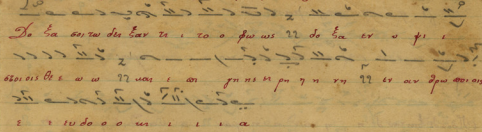 Δο ξα σοι τω δει ξαν τι ι το ο φω ως δο ξα εν υ ψι ι
στοι οις θε ε ω ω και ι επι γης ει ρη η νη εν αν θρω ποι οις
ε ε ευ δο ο ο κι ι ι ι α